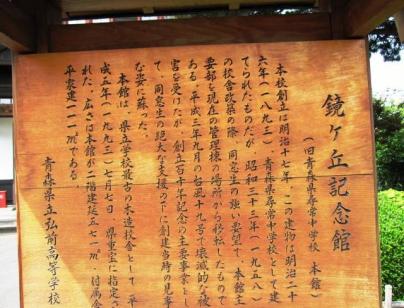 鏡ヶ丘記念館
(旧青森県尋常中学校 本館)
本校創立は明治十七年、この建物は明治二
六年(一八九三)青森県尋常中学校として建
てられたものだが、昭和三十三年(一九五八
の校舎改築の際、同窓生の強い要望で、本館主
要部を現在の管理棟の場所から移転したもので
ある。平成三年九月の台風十九号で壊滅的な被
害を受けたが、創立百十年記念の主要事業とし
て、同窓生の絶大な支援の下に創建当時の見事
な姿に蘇った。
本館は、県立学校最古の木造校舎として、平
成五年(一九九三)七月七日、県重宝に指定さ
れた。広さは本館が二階建延五七一㎡、付属舎
平家建一一二㎡である。
青森県立弘前高等学校